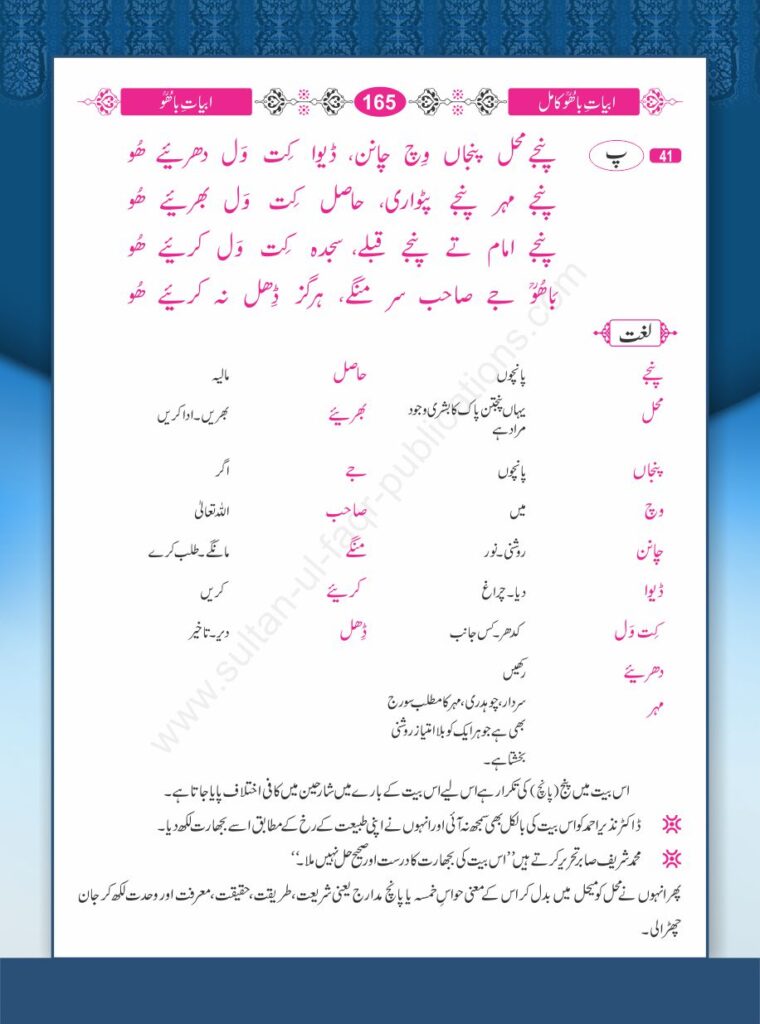 ابیاتِ باھُوؒ کامل 165 ابیاتِ باھُوؒ
41 پ پنجے محل پنجاں وِچ چانن، ڈیوا کِت وَل دھریئے ھُو
پنجے مہر پنجے پٹواری، حاصل کِت وَل بھریئے ھُو
پنجے امام تے پنجے قبلے، سجدہ کِت وَل کریئے ھُو
باھُوؒ جے صاحب سر منگے، ہرگز ڈِھل نہ کریئے ھُو
لغت
پنجے پانچوں حاصل مالیہ
محل یہاں پنجتن پاک کا بشری وجود بھریئے بھریں۔ ادا کریں
مراد ہے
پنجاں پانچوں جے اگر
وچ میں صاحب اللہ تعالیٰ
چانن روشنی۔ نور منگے مانگے۔ طلب کرے
ڈیوا دیا۔ چراغ کریئے کریں
کِت وَل کدھر۔ کس جانب ڈِھل دیر۔ تاخیر
دھریئے رکھیں
مہر سردار، چوہدری، مہر کا مطلب سورج
بھی ہے جو ہر ایک کو بلا امتیاز روشنی
بخشتا ہے۔
اس بیت میں پنج (پانچ) کی تکرار ہے اس لیے اس بیت کے بارے میں شارحین میں کافی اختلاف پایا جاتا ہے۔
ڈاکٹر نذیر احمد کو اس بیت کی بالکل بھی سمجھ نہ آئی اور انہوں نے اپنی طبیعت کے رخ کے مطابق اسے بجھارت لکھ دیا۔
محمد شریف صابر تحریر کرتے ہیں ”اس بیت کی بجھارت کا درست اور صحیح حل نہیں ملا۔“
پھر انہوں نے محل کو میحل میں بدل کر اس کے معنی حواسِ خمسہ یا پانچ مدارج یعنی شریعت، طریقت، حقیقت، معرفت اور وحدت لکھ کر جان
چھڑا لی۔
www.sultan-ul-faqr-publications.com